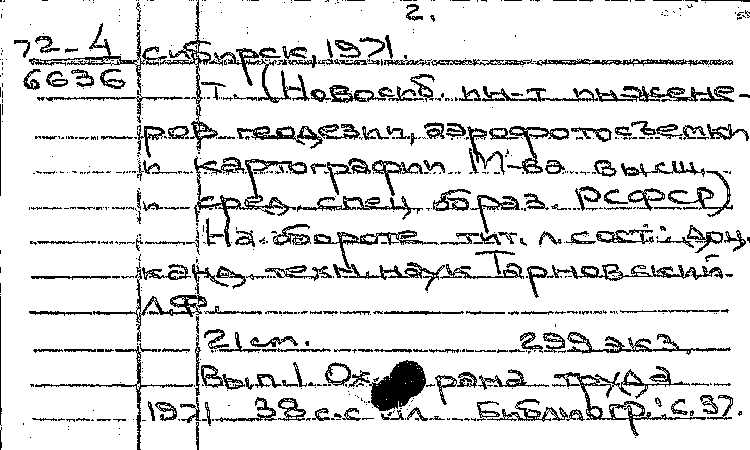 2.
72-4 сибирск, 1971.
6636 Т. (Новосиб. ин-т инжене-
ров геодезии, аэрофотосъемки
и картографии М-ва высш.
и сред. спец. образ. РСФСР)
На обороте тит. л. сост.: Доц.
канд. техн. наук Тарновский
Л.Ф.
21 см. 299 экз.
Вып. 1. Охрана труда.
1971 38 с. с ил. Библиогр.: с. 37.